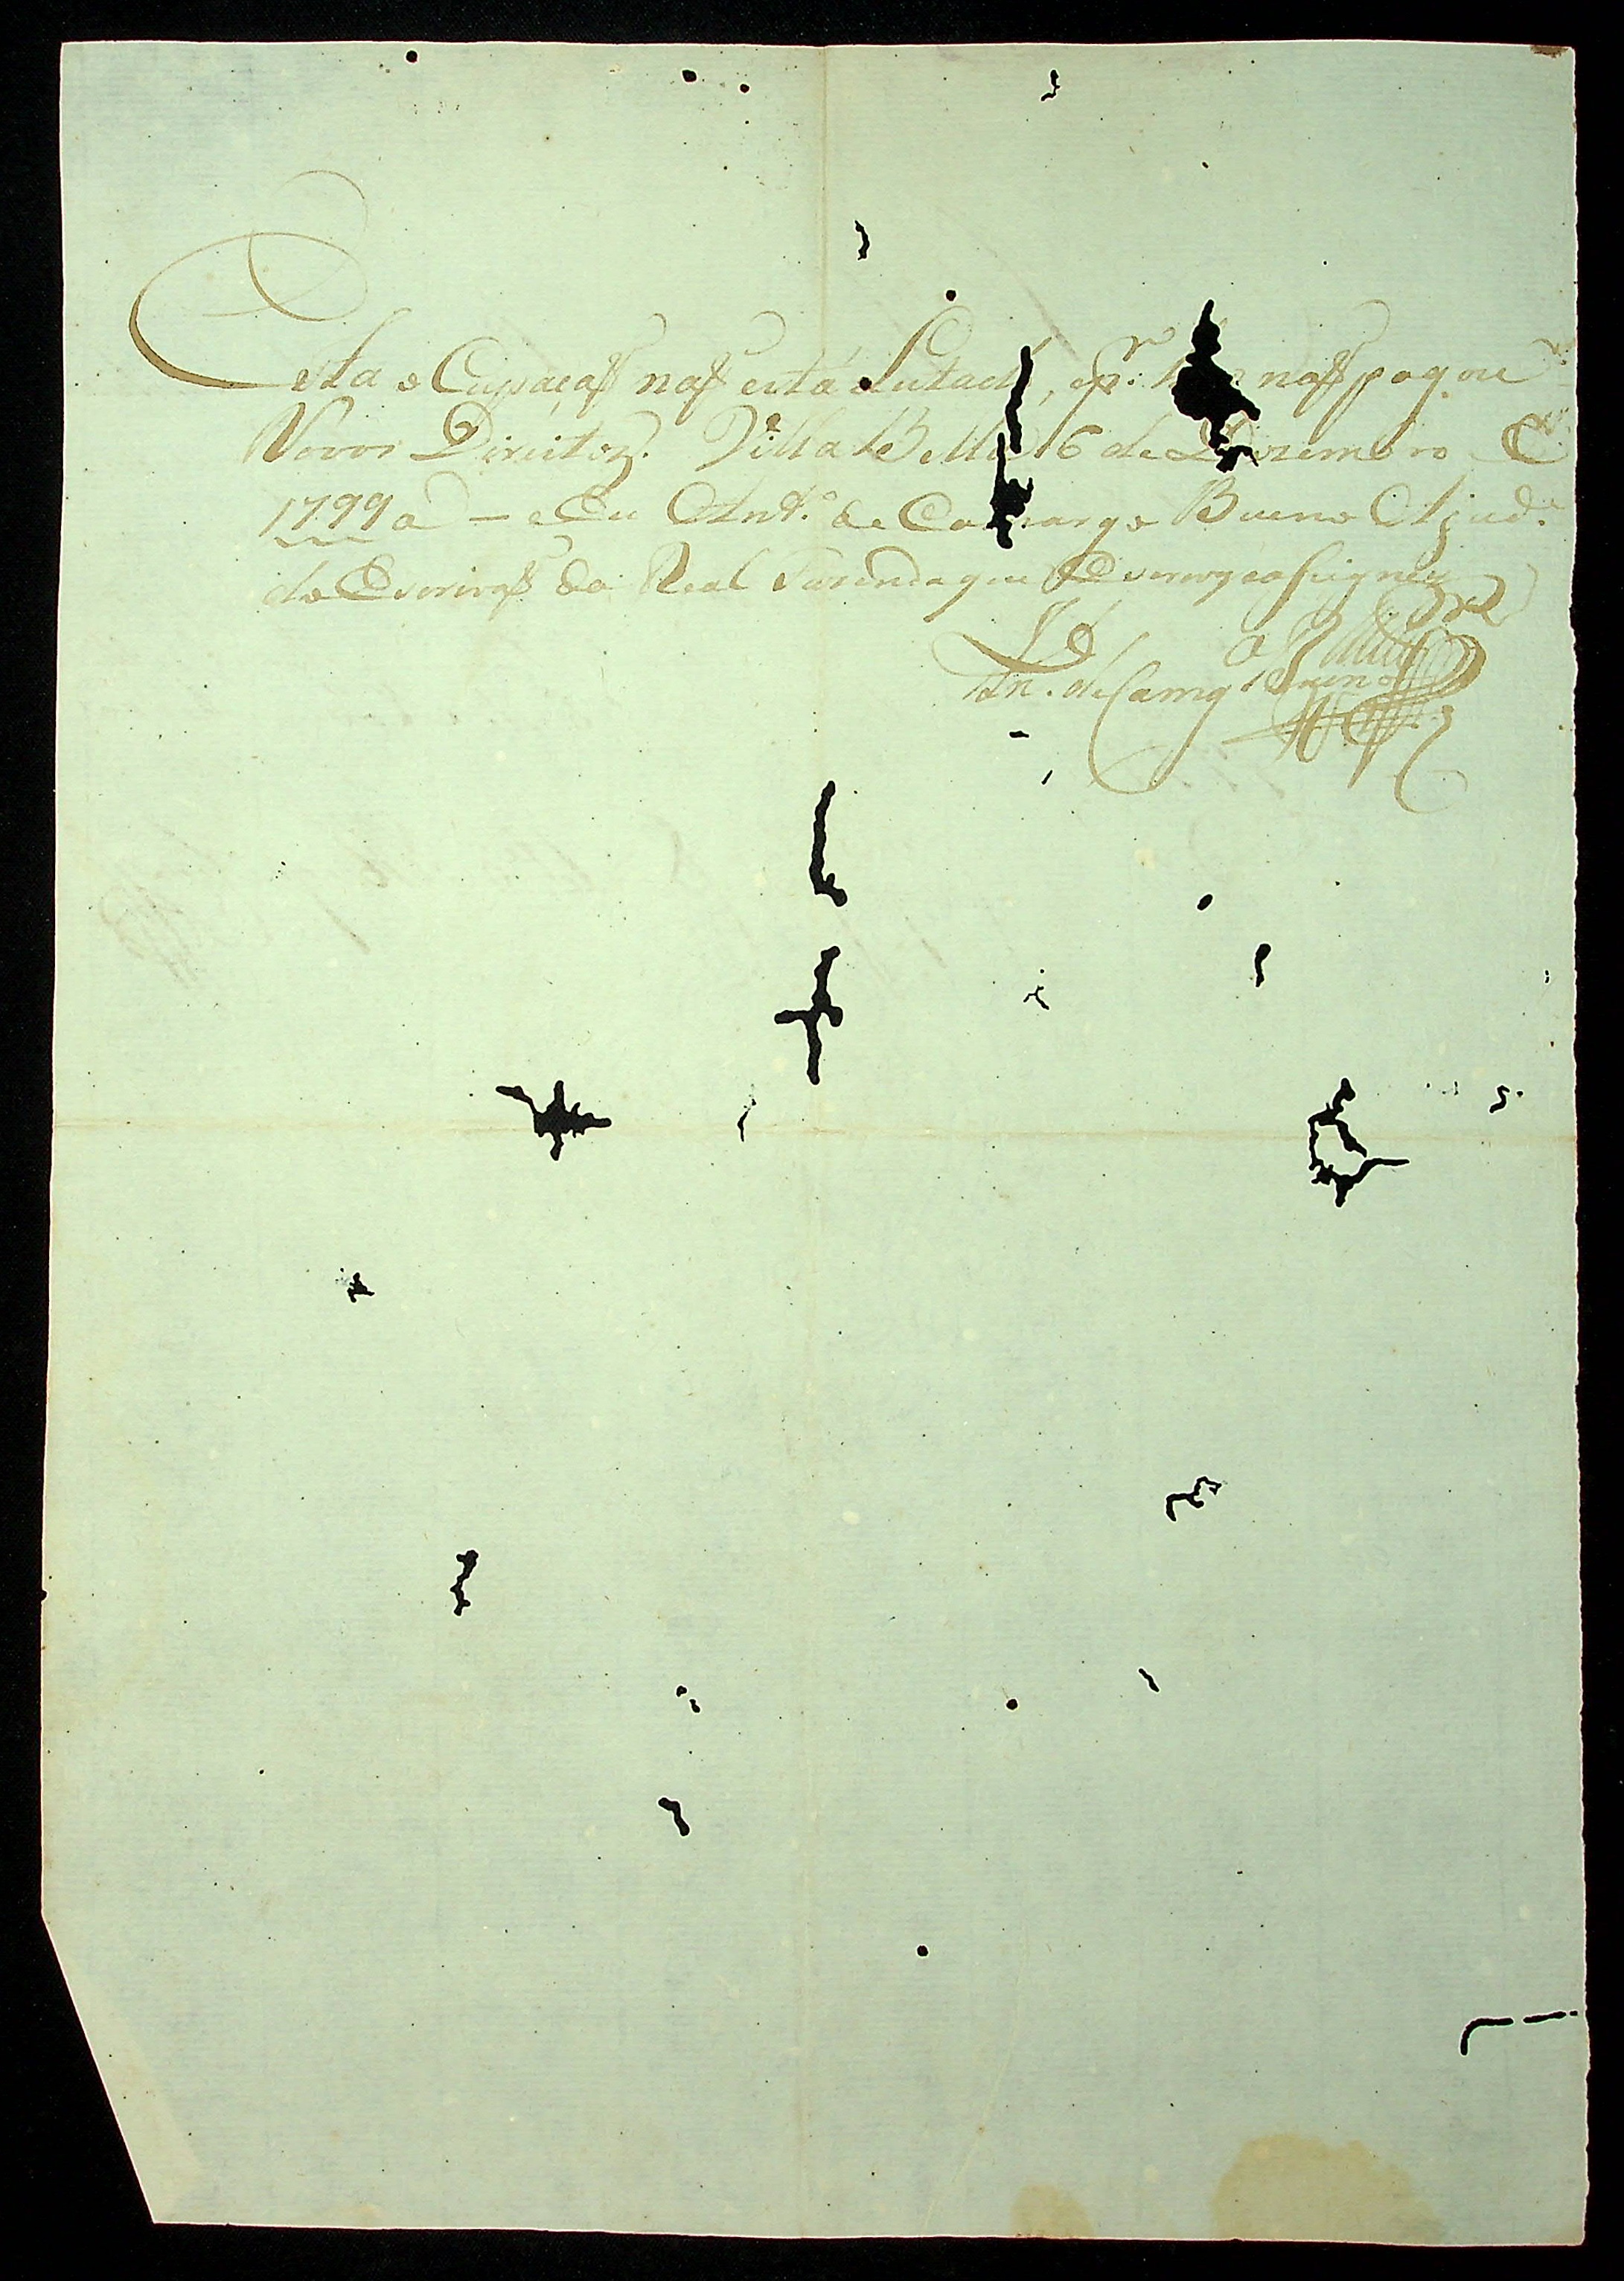 Esta Ocupaçaõ naõ está Lutada, e p.r naõ pagou
Novos Direitos. Villa Bella 16 de Dezembro
1799 a — e Eu Ant.o de Camargo Bueno Ajud.e
do Escrivaõ da Real Fazenda que o escrevy e asigney
An. de Camg.o Bueno